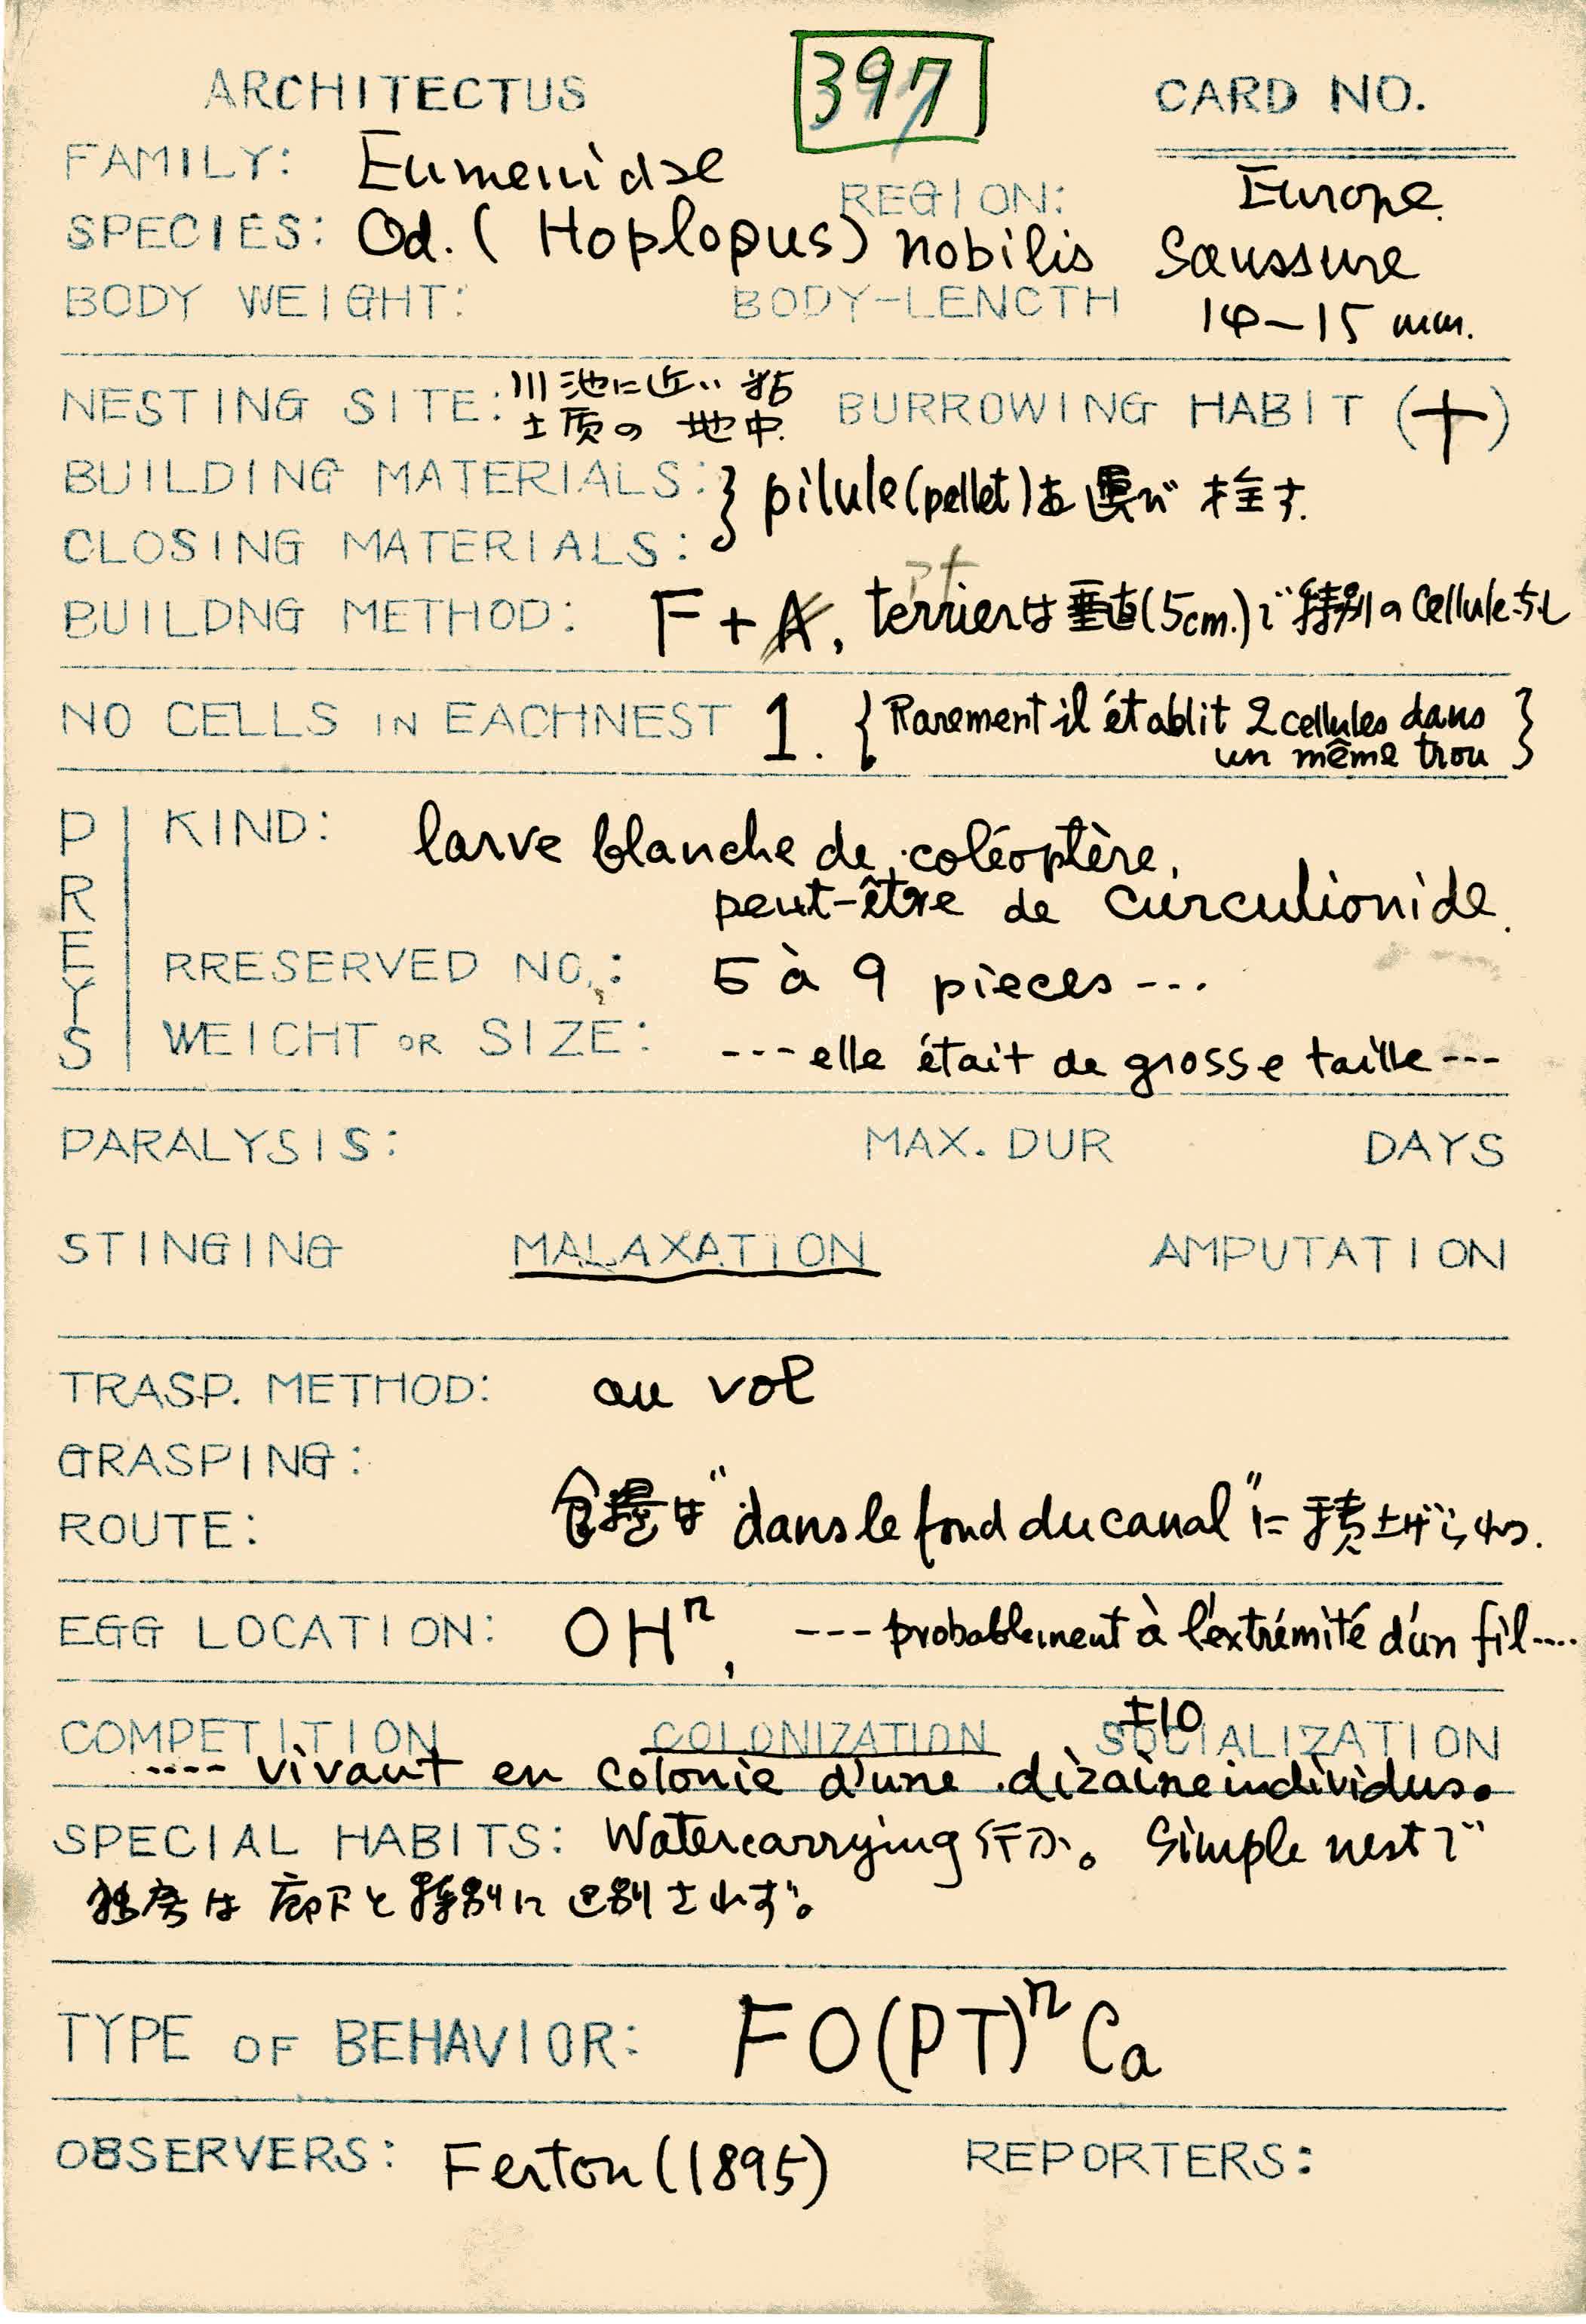 397
ARCHITECTUS
CARD NO.
FAMILY: Eumenidae
REGION: Europe.
SPECIES: Od. (Hoplopus) nobilis Saussure
BODY WEIGHT:
BODY-LENGTH 14-15 mm.
NESTING SITE: 川池に近い粘
土质の 地中.
BURROWING HABIT (+)
BUILDING MATERIALS:
CLOSING MATERIALS:
} pilule(pellet)を運び 栓す.
BUILDNG METHOD: F+A, terrierは垂直(5cm.)で特別のCelluleなし
NO CELLS IN EACHNEST 1. {Rarement il établit 2 cellules dans
un même trou}
PREYS
KIND: larve blanche de coléoptère,
peut-être de curculionide.
RRESERVED NO.: 5 à 9 pieces---
WEICHT OR SIZE: ---elle était de grosse taille---
PARALYSIS:
MAX. DUR
DAYS
STINGING
MALAXATION
AMPUTATION
TRASP. METHOD: au vol
GRASPING:
ROUTE: は"dans le fond du canal"に積上げられる.
EGG LOCATION: OHⁿ, ---probablement à l'extrémité d'un fil....
COMPETITION
COLONIZATION
SOCIALIZATION
±10
---- vivant en colonie d'une dizaine individus.
SPECIAL HABITS: Watercarrying行う。 Simple nestで
独房は廊下と特別に区別されず。
TYPE OF BEHAVIOR: FO(PT)ⁿCa
OBSERVERS: Ferton (1895)
REPORTERS: